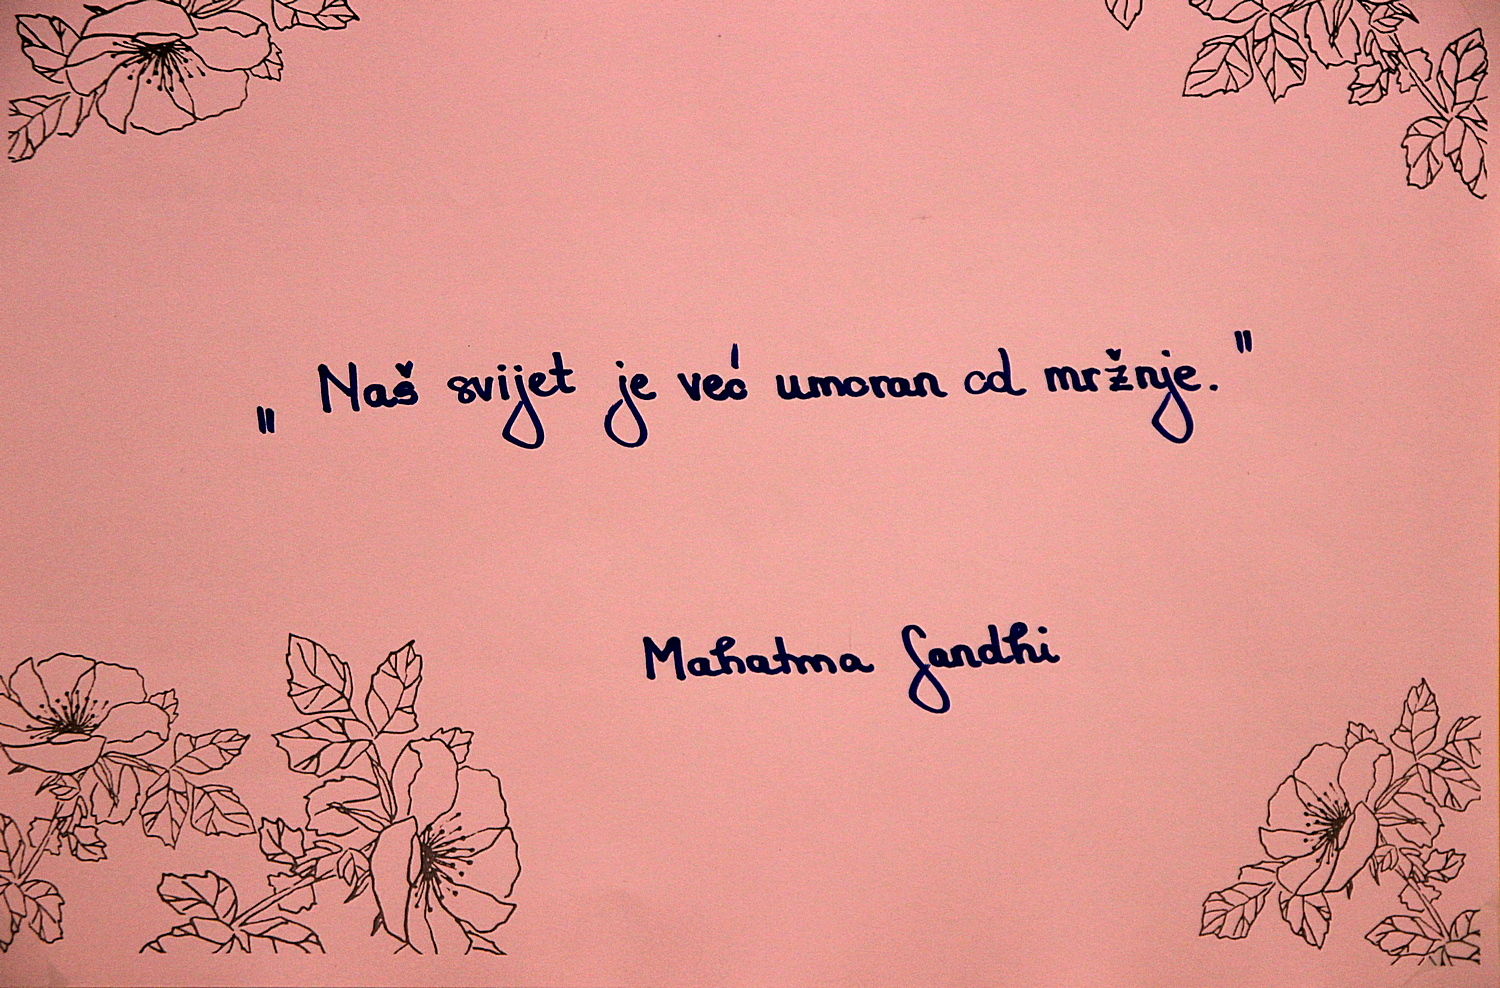 „Naš svijet je već umoran od mržnje."
Mahatma Gandhi